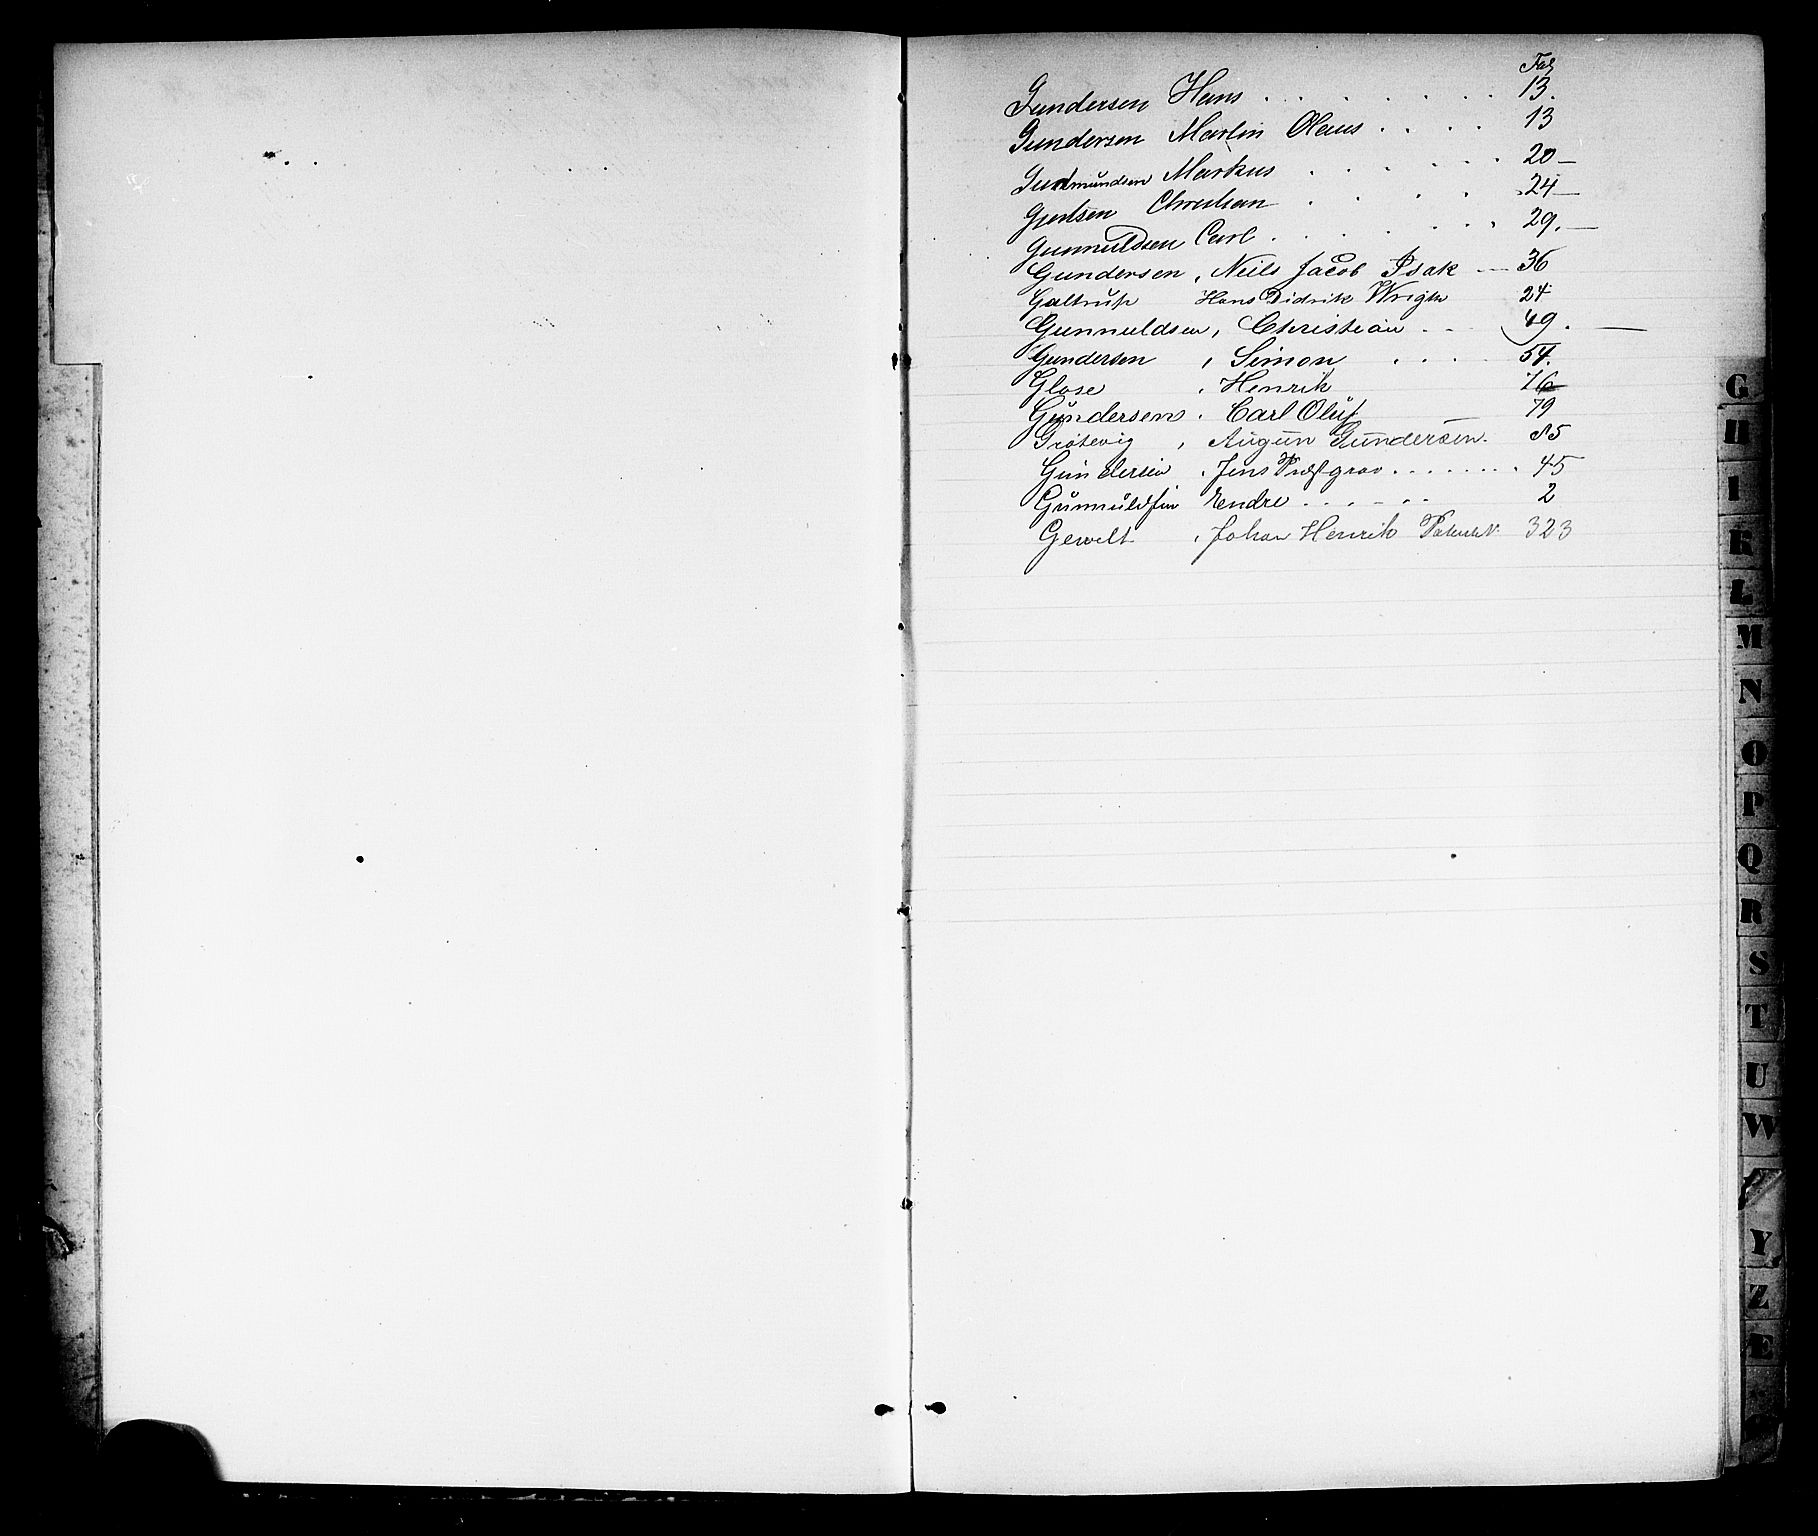 Fol
Gundersen Hans . . . . . . . 13.
Gundersen Martin Olaus . . . . 13
Gudmundsen Markus . . . . . . 20 —
Gjertsen Christian . . . . 24 —
Gunnuldsen Carl . . . . . . 29. —
Gundersen, Neils Jacob Isak — 36
Galtrup Hans Didrik Wright 24
Gunnuldsen, Christian . . - 49. —
Gundersen, Simon . . . . 54.
Glose, Henrik 76
Gundersen, Carl Oluf 79
Grotevig, Augun Gundersen. 85
Gundersen, Jens . . . . . . . 45
Gunnuldsen Endre . . . - . . 2
Gewelt, Johan Henrik 323
G
H
I
K
L
M
N
O
P
Q
R
S
T
U
W
Y
Z